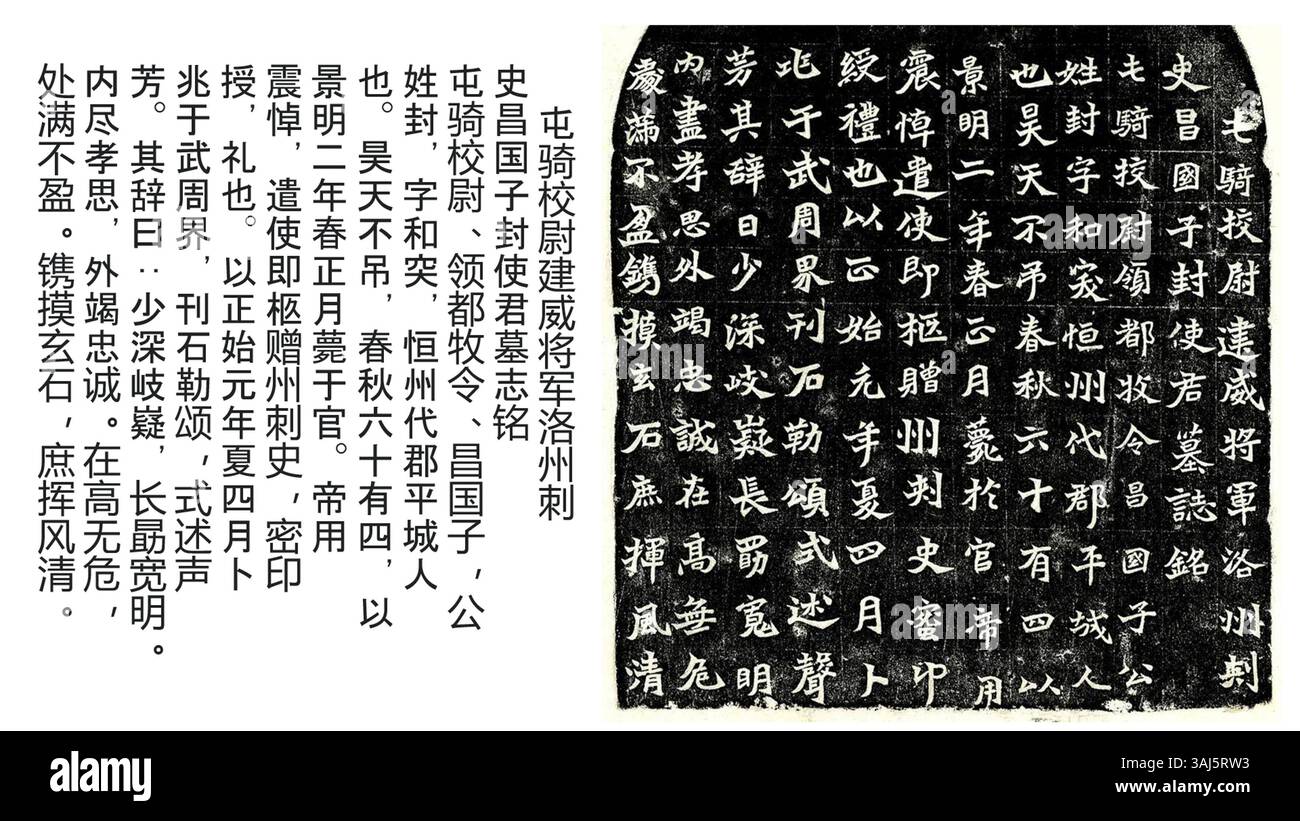 屯骑校尉建威将军洛州刺
史昌国子封使君墓志铭
屯骑校尉、领都牧令、昌国子，公
姓封，字和突，恒州代郡平城人
也。昊天不吊，春秋六十有四，以
景明二年春正月薨于官。帝用
震悼，遣使即柩赠州刺史，密印
授，礼也。以正始元年夏四月卜
兆于武周界，刊石勒颂，式述声
芳。其辞曰：少深岐嶷，长勗宽明。
内尽孝思，外竭忠诚。在高无危，
处满不盈。镌摸玄石，庶挥风清。
屯騎挍尉建威将軍洛州刾
史昌國子封使君墓誌銘
屯騎挍尉領都牧令昌國子公
姓封字和突恒州代郡平城人
也昊天不吊春秋六十有四以
景明二年春正月薨於官帝用
震悼遣使即柩贈州刾史密印
綬禮也以正始元年夏四月卜
兆于武周界刊石勒頌式述聲
芳其辞曰少深岐嶷長勗寬明
内盡孝思外竭忠誠在高無危
處滿不盈鐫摸玄石庶揮風清
alamy
Image ID: 3AJ5RW3
www.alamy.com